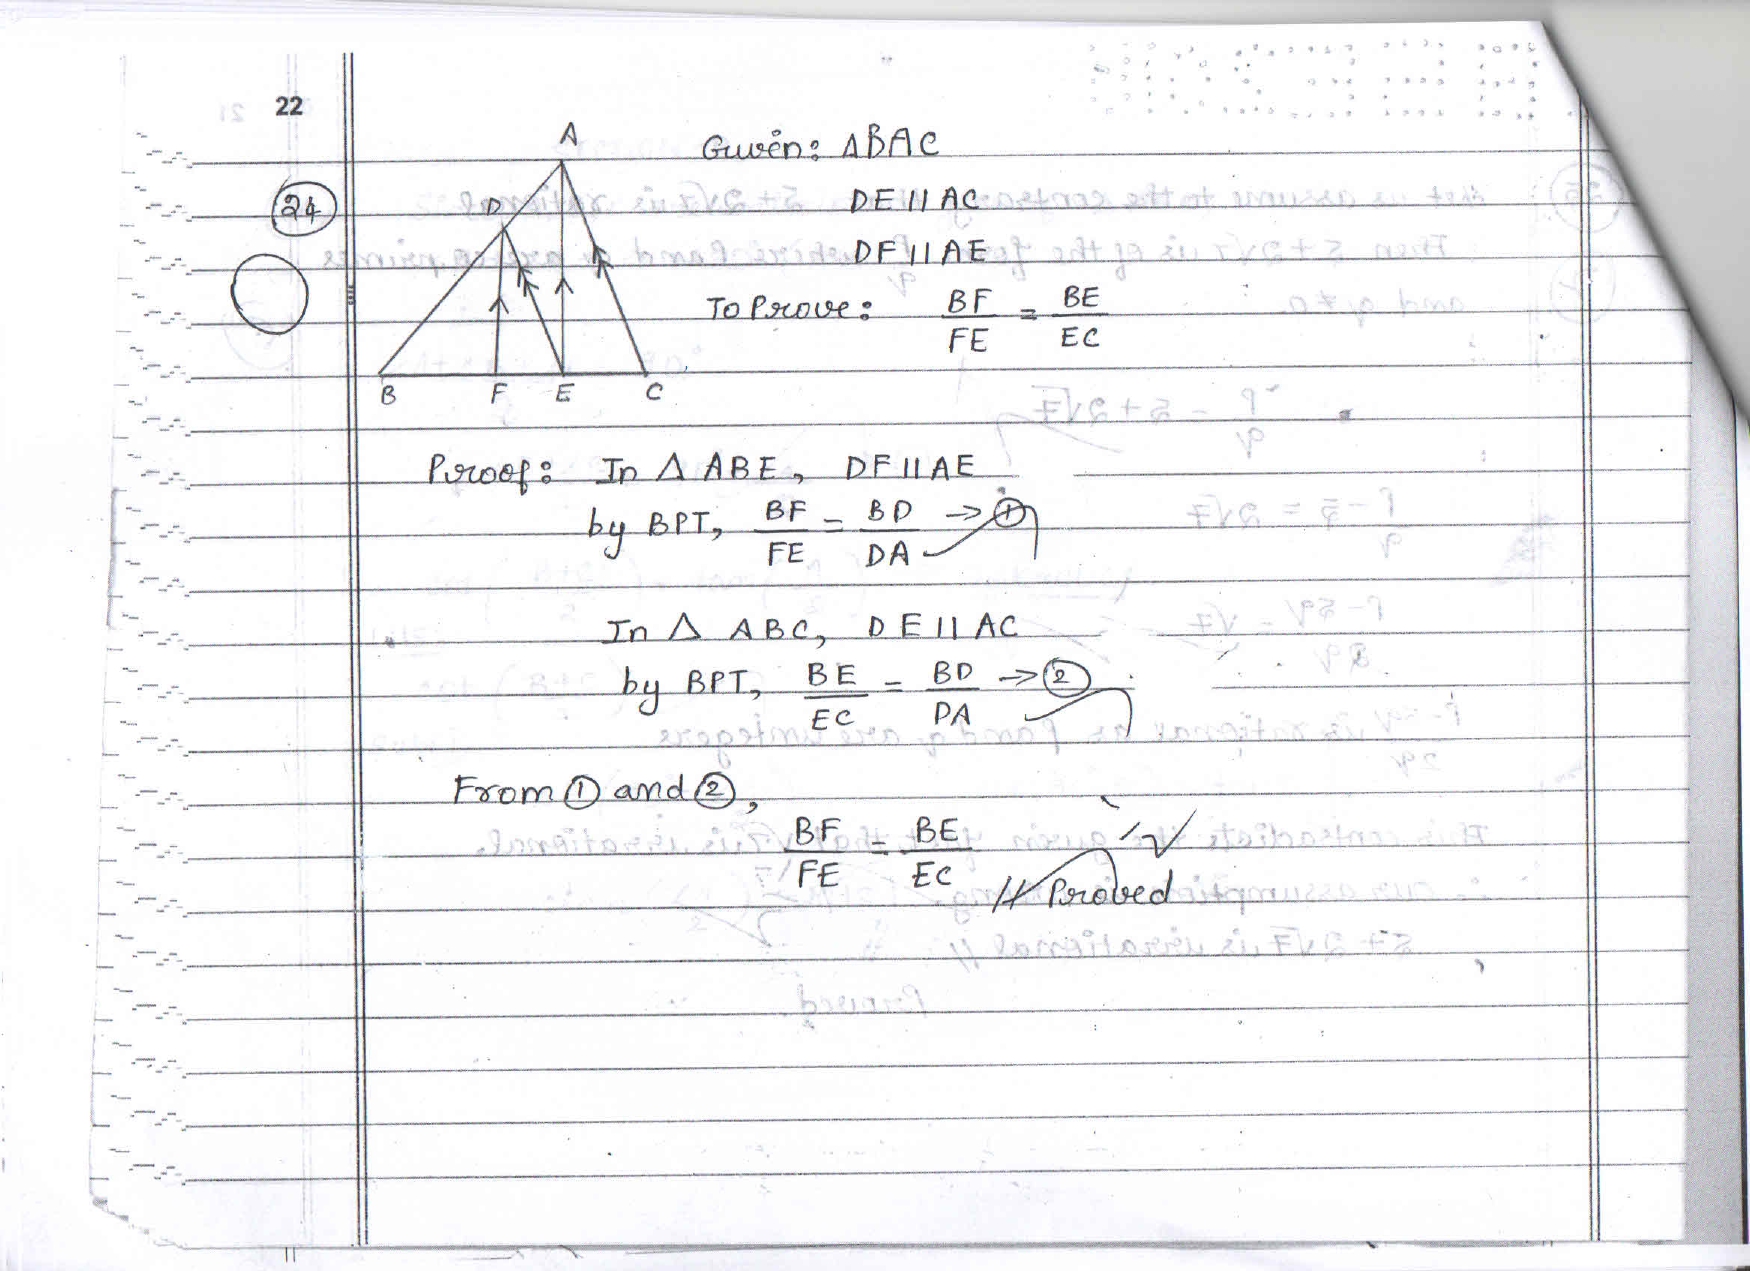 22
24
A
D
B F E C
Given: ΔBAC
DE || AC
DF || AE
To Prove: BF/FE = BE/EC
Proof: In Δ ABE, DF || AE
by BPT, BF/FE = BD/DA → ①
In Δ ABC, DE || AC
by BPT, BE/EC = BD/DA → ②
From ① and ②,
BF/FE = BE/EC
// Proved